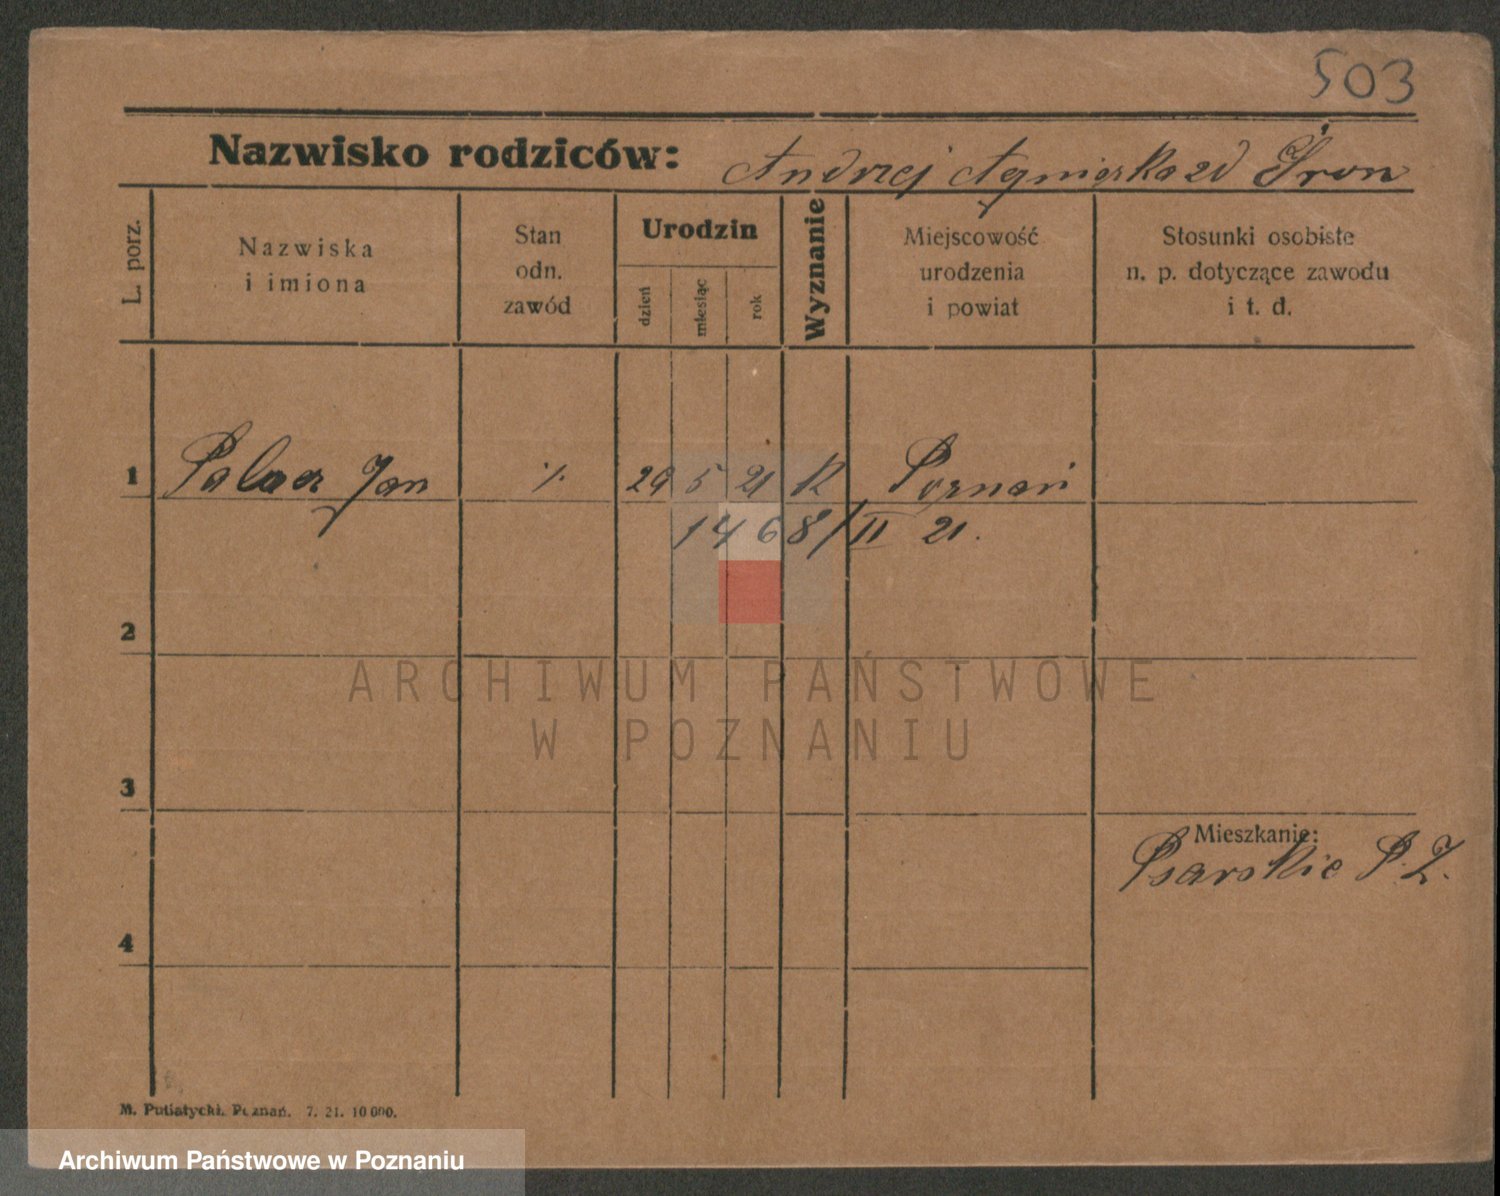 503
Nazwisko rodziców: Andrzej Agnieszka zd Śron
L. porz.
Nazwiska i imiona
Stan odn. zawód
Urodzin
dzień
miesiąc
rok
Wyznanie
Miejscowość urodzenia i powiat
Stosunki osobiste n. p. dotyczące zawodu i t. d.
1 Jan ·/. 29 5 21 K Poznań
1468/II 21.
2
ARCHIWUM PAŃSTWOWE
W POZNANIU
3
Mieszkanie:
Psarskie P. Z.
4
M. Putiatycki. Poznań. 7. 21. 10 000.
Archiwum Państwowe w Poznaniu